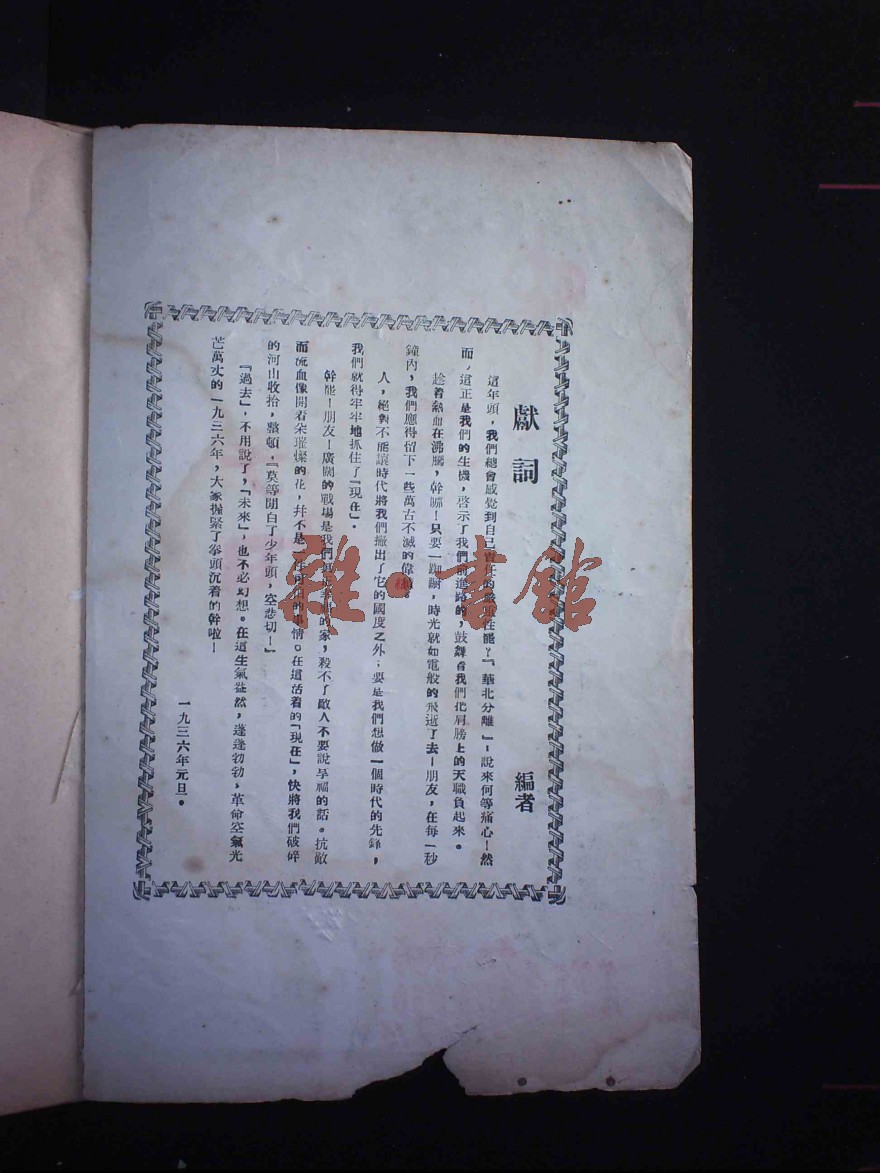 獻詞
編者
這年頭，我們總會感覺到自己責任的嚴重性罷？「華北分離」，說來何等痛心！然
而，這正是我們的生機，啓示了我們前進路的，鼓舞着我們把肩膀上的天職負起來。
趁着熱血在沸騰，幹哪！只要一踟躕，時光就如電般的飛逝了去！朋友，在每一秒
鐘內，我們應得留下一些萬古不滅的偉
人，絕對不能讓時代將我們搬出了它的國度之外；要是我們想做一個時代的先鋒，
我們就得牢牢地抓住了「現在」。
幹罷！朋友！廣闊的戰場是我們的家，殺不了敵人不要說享福的話。抗敵
而流血像開着朵璀燦的花，幷不是一件的事情。在這活着的「現在」，快將我們破碎
的河山收拾，整頓，「莫等閒白了少年頭，空悲切！」
「過去」，不用說了，「未來」，也不必幻想。在這生氣盎然，蓬蓬勃勃，革命空氣光
芒萬丈的一九三六年，大家握緊了拳頭沉着的幹啦！
一九三六年元旦。
雜·書館